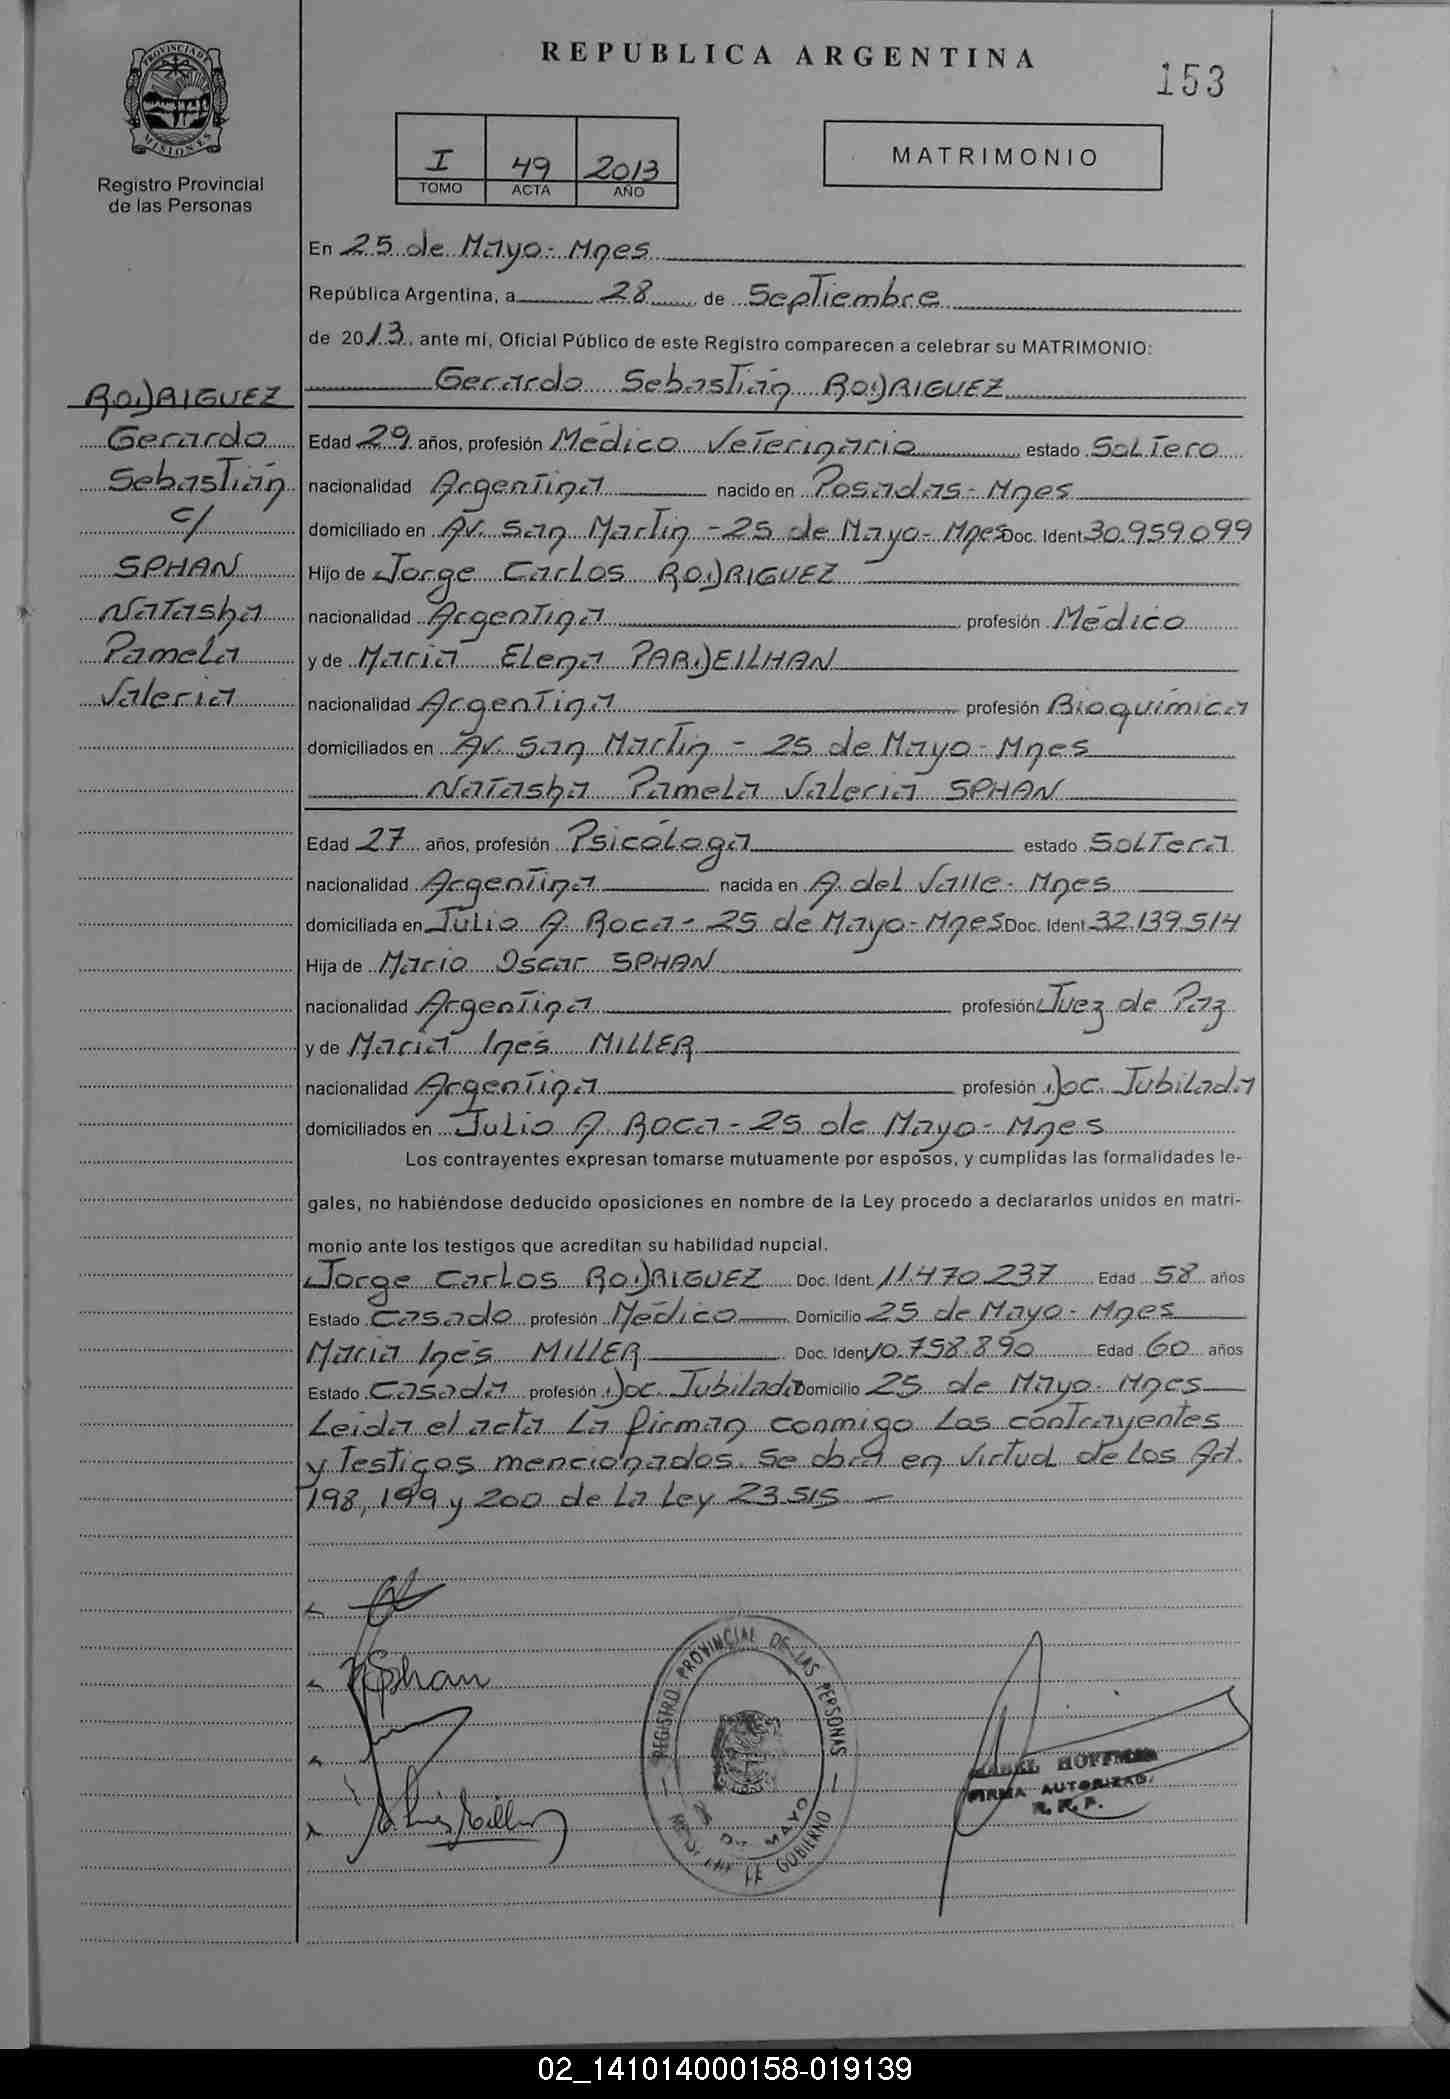 REPUBLICA ARGENTINA
153
PROVINCIA DE
MISIONES
Registro Provincial
de las Personas
I 49 2013
TOMO ACTA AÑO
MATRIMONIO
En 25 de Mayo - Mnes
República Argentina, a 28 de Septiembre
de 2013, ante mí, Oficial Público de este Registro comparecen a celebrar su MATRIMONIO:
Gerardo Sebastián RODRIGUEZ
RODRIGUEZ
Gerardo
Sebastián
c/
SPHAN
Natasha
Pamela
Valeria
Edad 29 años, profesión Médico Veterinario estado Soltero
nacionalidad Argentina nacido en Posadas - Mnes
domiciliado en Av. San Martin - 25 de Mayo - Mnes Doc. Ident 30.959.099
Hijo de Jorge Carlos RODRIGUEZ
nacionalidad Argentina profesión Médico
y de Maria Elena PARDEILHAN
nacionalidad Argentina profesión Bioquímica
domiciliados en Av. San Martin - 25 de Mayo - Mnes
Natasha Pamela Valeria SPHAN
Edad 27 años, profesión Psicóloga estado Soltera
nacionalidad Argentina nacida en A. del Valle - Mnes
domiciliada en Julio A. Roca - 25 de Mayo - Mnes Doc. Ident 32.139.514
Hija de Mario Oscar SPHAN
nacionalidad Argentina profesión Juez de Paz
y de Maria Inés MILLER
nacionalidad Argentina profesión Doc. Jubilada
domiciliados en Julio A. Roca - 25 de Mayo - Mnes
Los contrayentes expresan tomarse mutuamente por esposos, y cumplidas las formalidades le-
gales, no habiéndose deducido oposiciones en nombre de la Ley procedo a declararlos unidos en matri-
monio ante los testigos que acreditan su habilidad nupcial.
Jorge Carlos RODRIGUEZ Doc. Ident. 11.470.237 Edad 58 años
Estado Casado profesión Médico Domicilio 25 de Mayo - Mnes
Maria Inés MILLER Doc. Ident 10.758.890 Edad 60 años
Estado Casada profesión Doc. Jubilada Domicilio 25 de Mayo - Mnes
Leida el acta la firman conmigo los contrayentes
y testigos mencionados. Se obra en virtud de los Art.
198, 199 y 200 de la Ley 23.515 -
NSphan
REGISTRO PROVINCIAL DE LAS PERSONAS
DE MAYO
GOBIERNO
HOFFMAN
FIRMA AUTORIZADA
R. P. P.
02_141014000158-019139